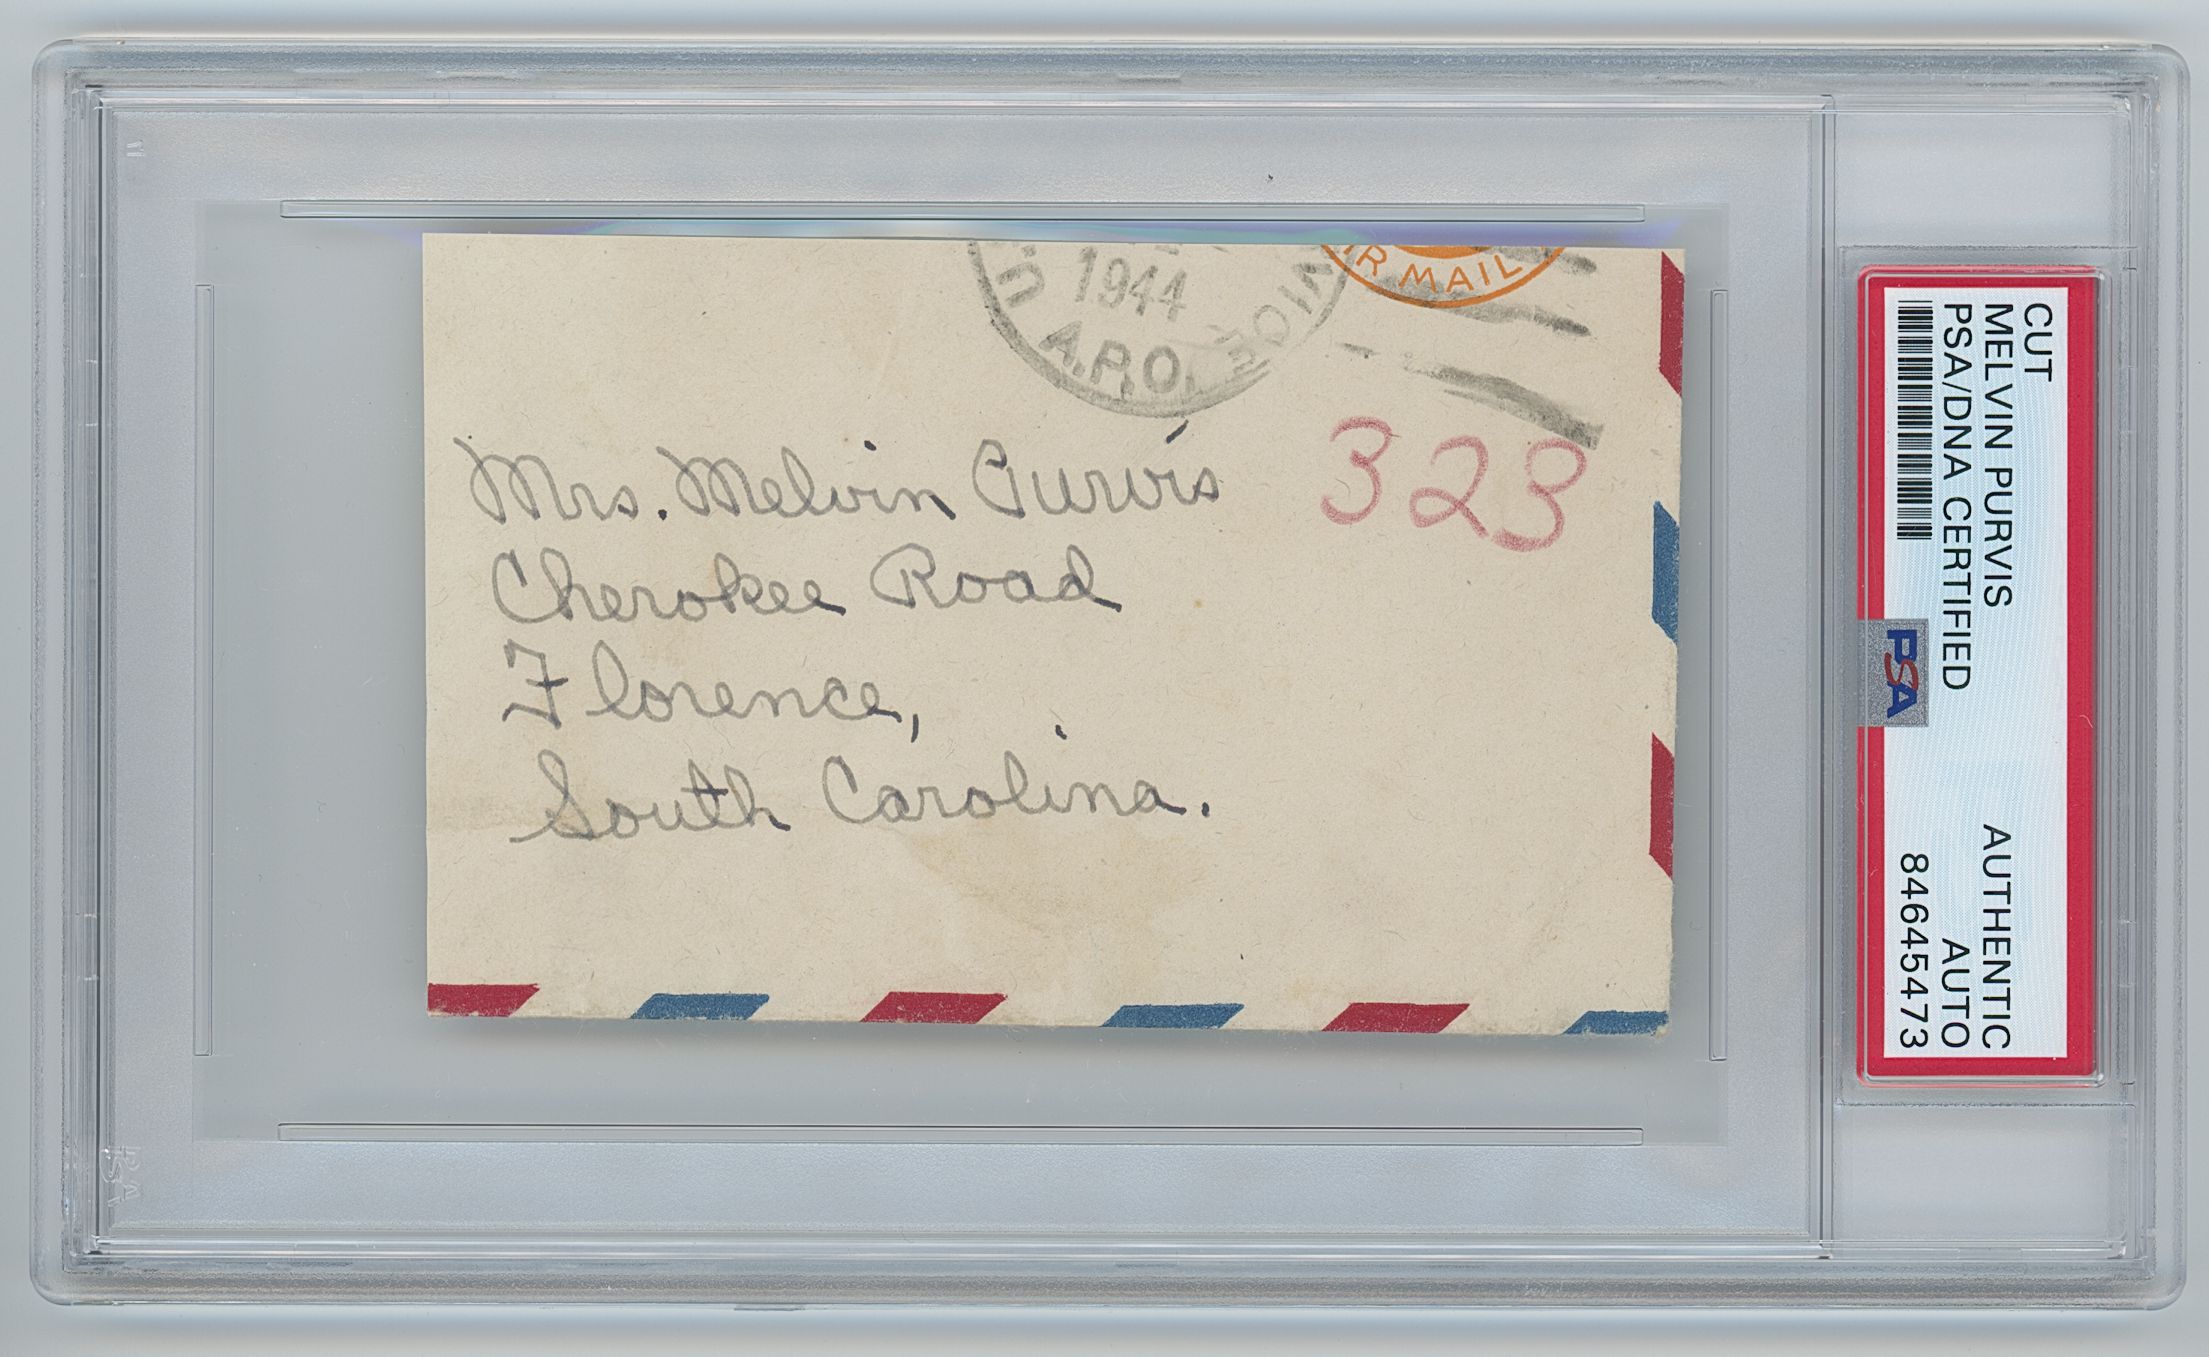 1944
U.
A.P.O.
VICE
IR MAIL
323
Mrs. Melvin Purvis
Cherokee Road
Florence,
South Carolina.
CUT
MELVIN PURVIS
AUTHENTIC
PSA/DNA CERTIFIED
AUTO
84645473
PSA
PSA